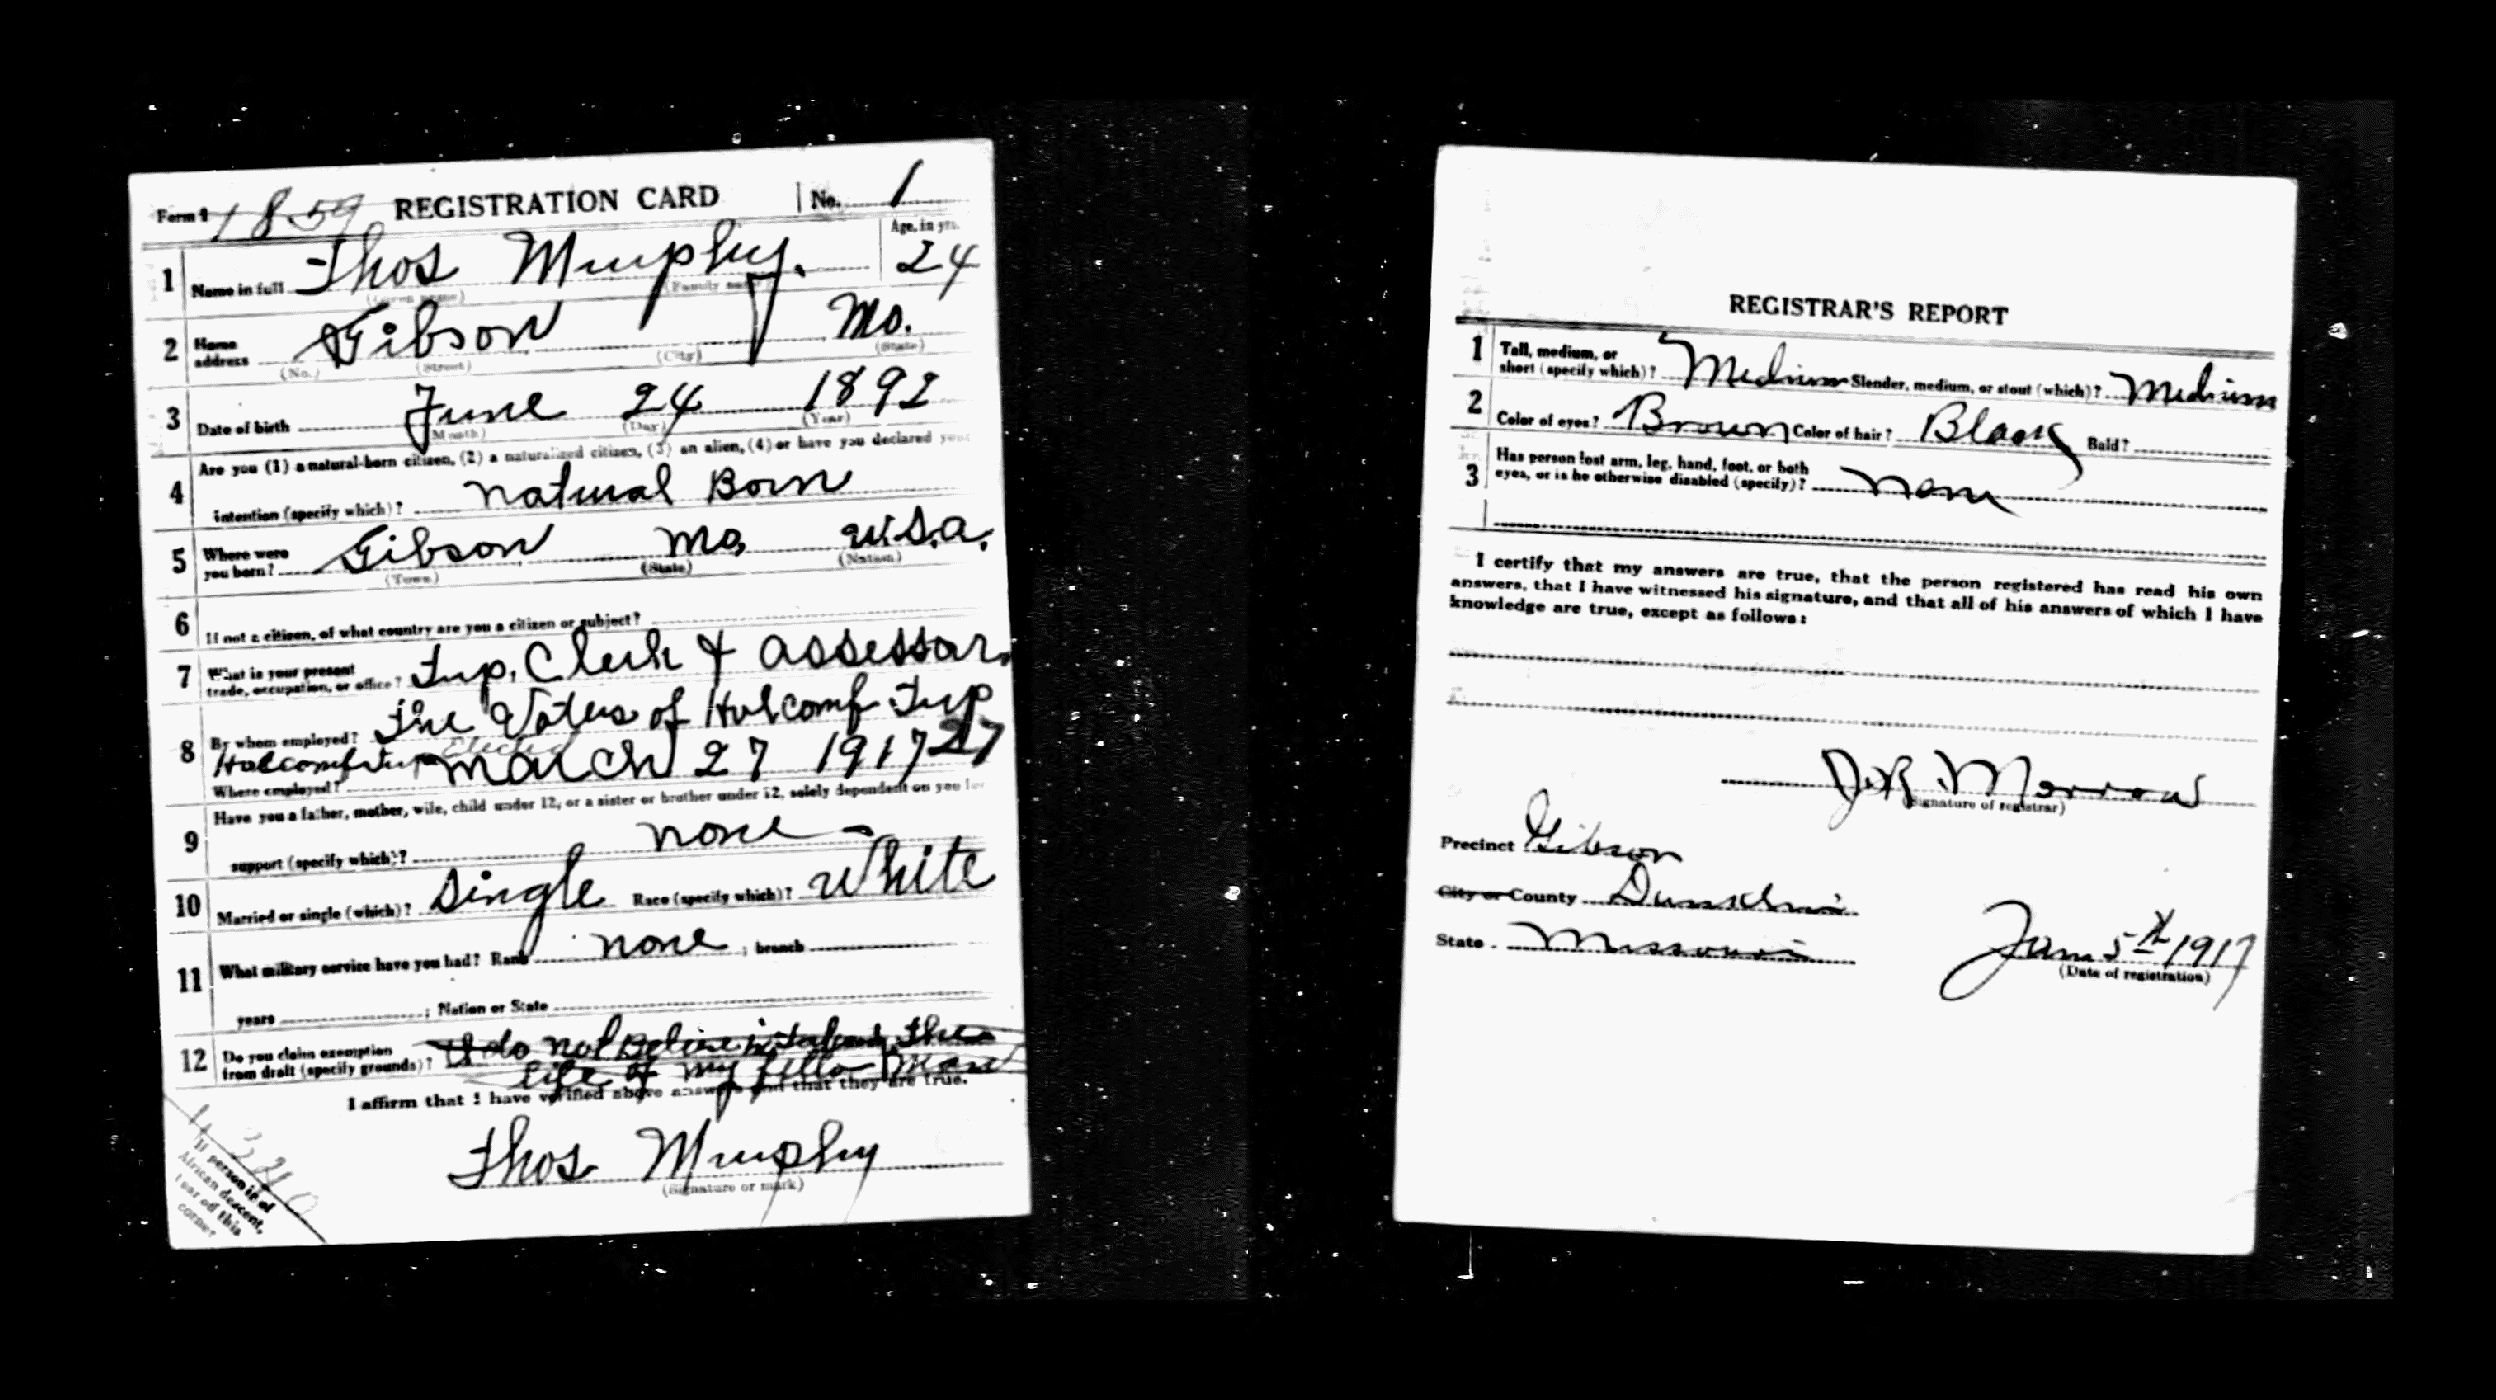 Form 1 1859 REGISTRATION CARD No. 1
Age, in yrs.
1 Name in full Thos Murphy. 24
(Given name) (Family name)
2 Home address Gibson Mo.
(No.) (Street) (City) (State)
3 Date of birth June 24 1892
(Month) (Day) (Year)
Are you (1) a natural-born citizen, (2) a naturalized citizen, (3) an alien, (4) or have you declared your
4 intention (specify which)? Natural Born
5 Where were you born? Gibson Mo, U.S.A.
(Town) (State) (Nation)
6 If not a citizen, of what country are you a citizen or subject?
7 What is your present trade, occupation, or office? Twp. Clerk & Assessor.
8 By whom employed? The Voters of Holcomb Twp
Holcomb Twp Elected March 27 1917 27
Where employed?
Have you a father, mother, wife, child under 12, or a sister or brother under 12, solely dependent on you for
9 support (specify which)? none
10 Married or single (which)? Single Race (specify which)? White
11 What military service have you had? Rank none ; branch
years ; Nation or State
12 Do you claim exemption I do not Believe in Taking the
from draft (specify grounds)? life of my fello Man
I affirm that I have verified above answers and that they are true.
Thos Murphy
(Signature or mark)
If person is of
African descent,
tear off this
corner
REGISTRAR'S REPORT
1 Tall, medium, or short (specify which)? Medium Slender, medium, or stout (which)? Medium
2 Color of eyes? Brown Color of hair? Black Bald?
3 Has person lost arm, leg, hand, foot, or both
eyes, or is he otherwise disabled (specify)? None
I certify that my answers are true, that the person registered has read his own
answers, that I have witnessed his signature, and that all of his answers of which I have
knowledge are true, except as follows:
Morrow
(Signature of registrar)
Precinct Gibson
City or County Dunklin
State Missouri
5th 1917
(Date of registration)